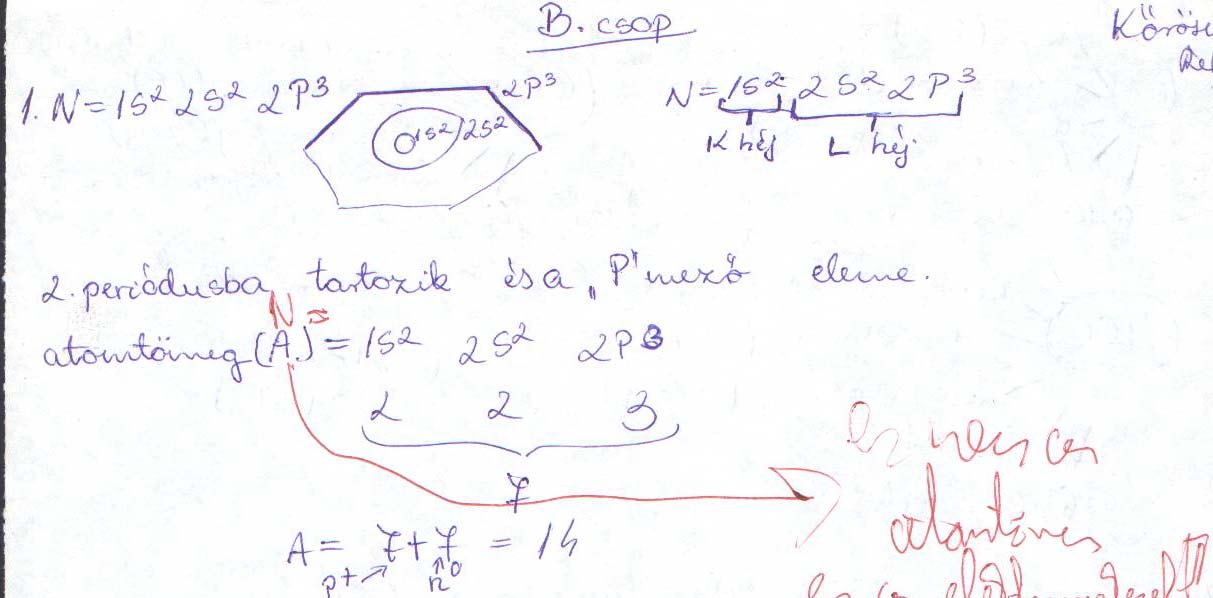 B. csop
Kőrösi
1. N = 1s² 2s² 2p³
2p³
1s² 2s²
N = 1s² 2s² 2p³
K héj L héj
2. periódusba tartozik és a „P” mező eleme.
N =
atomtömeg (A.) = 1s² 2s² 2p3
2 2 3
7
ez nem az
A = 7 + 7 = 14
atomtömeg
p+ n⁰